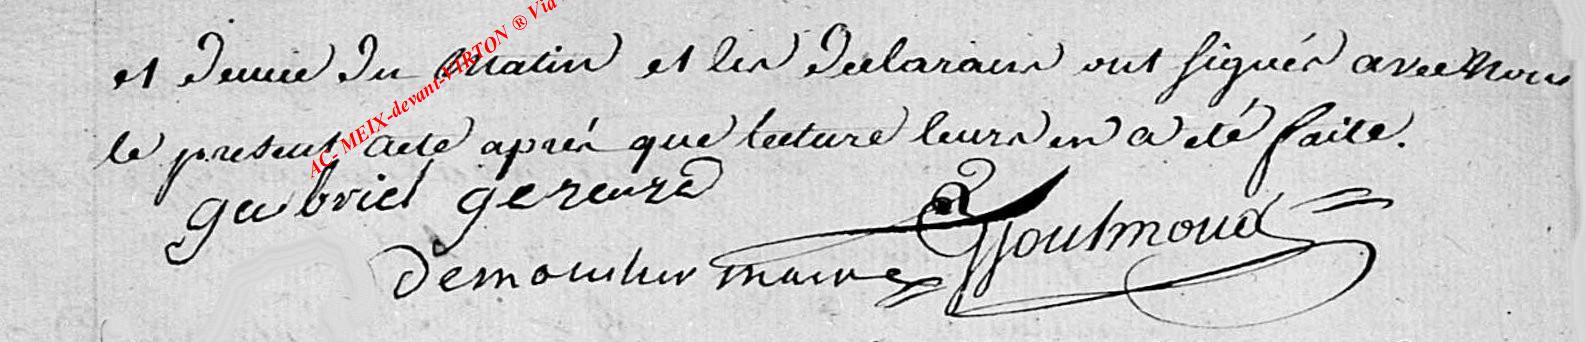 et demie du Matin et les declarans ont signés avec Nous
le present acte aprés que lecture leurs en a eté faite.
gabriel gerard
Toutmond
demoulin maire
AC- MEIX-devant-VIRTON ® Via